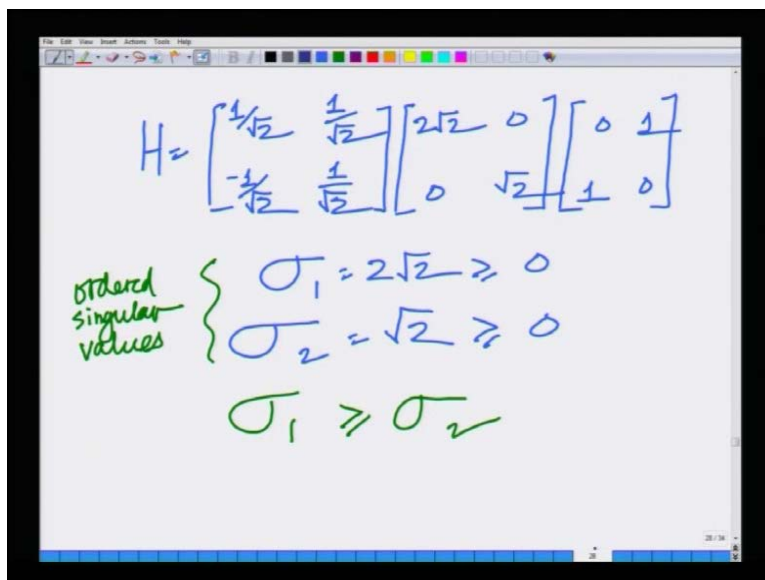 File Edit View Insert Actions Tools Help
B I
H= [1/√2 1/√2] [2√2 0] [0 1]
[-1/√2 1/√2] [0 √2] [1 0]
ordered singular values { σ₁ = 2√2 ≥ 0
σ₂ = √2 ≥ 0
σ₁ ≥ σ₂
28 / 36
28